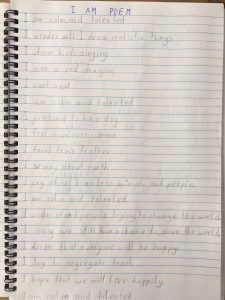 I AM POEM
I am calm and talented
I wonder will I draw realistic things
I hear birds singing
I see a red dragon
I want a cat
I am calm and talented
I pretend to be a dog
I feel a unicorns mane
I touch
I worry about earth
I cry about homeless animals and people
I am calm and talented
I understand people trying to change the world
I say we still have a chance to save the world
I dream that everyone will be happy
I try to segregate trash
I hope that we will live happily
I am calm and talented